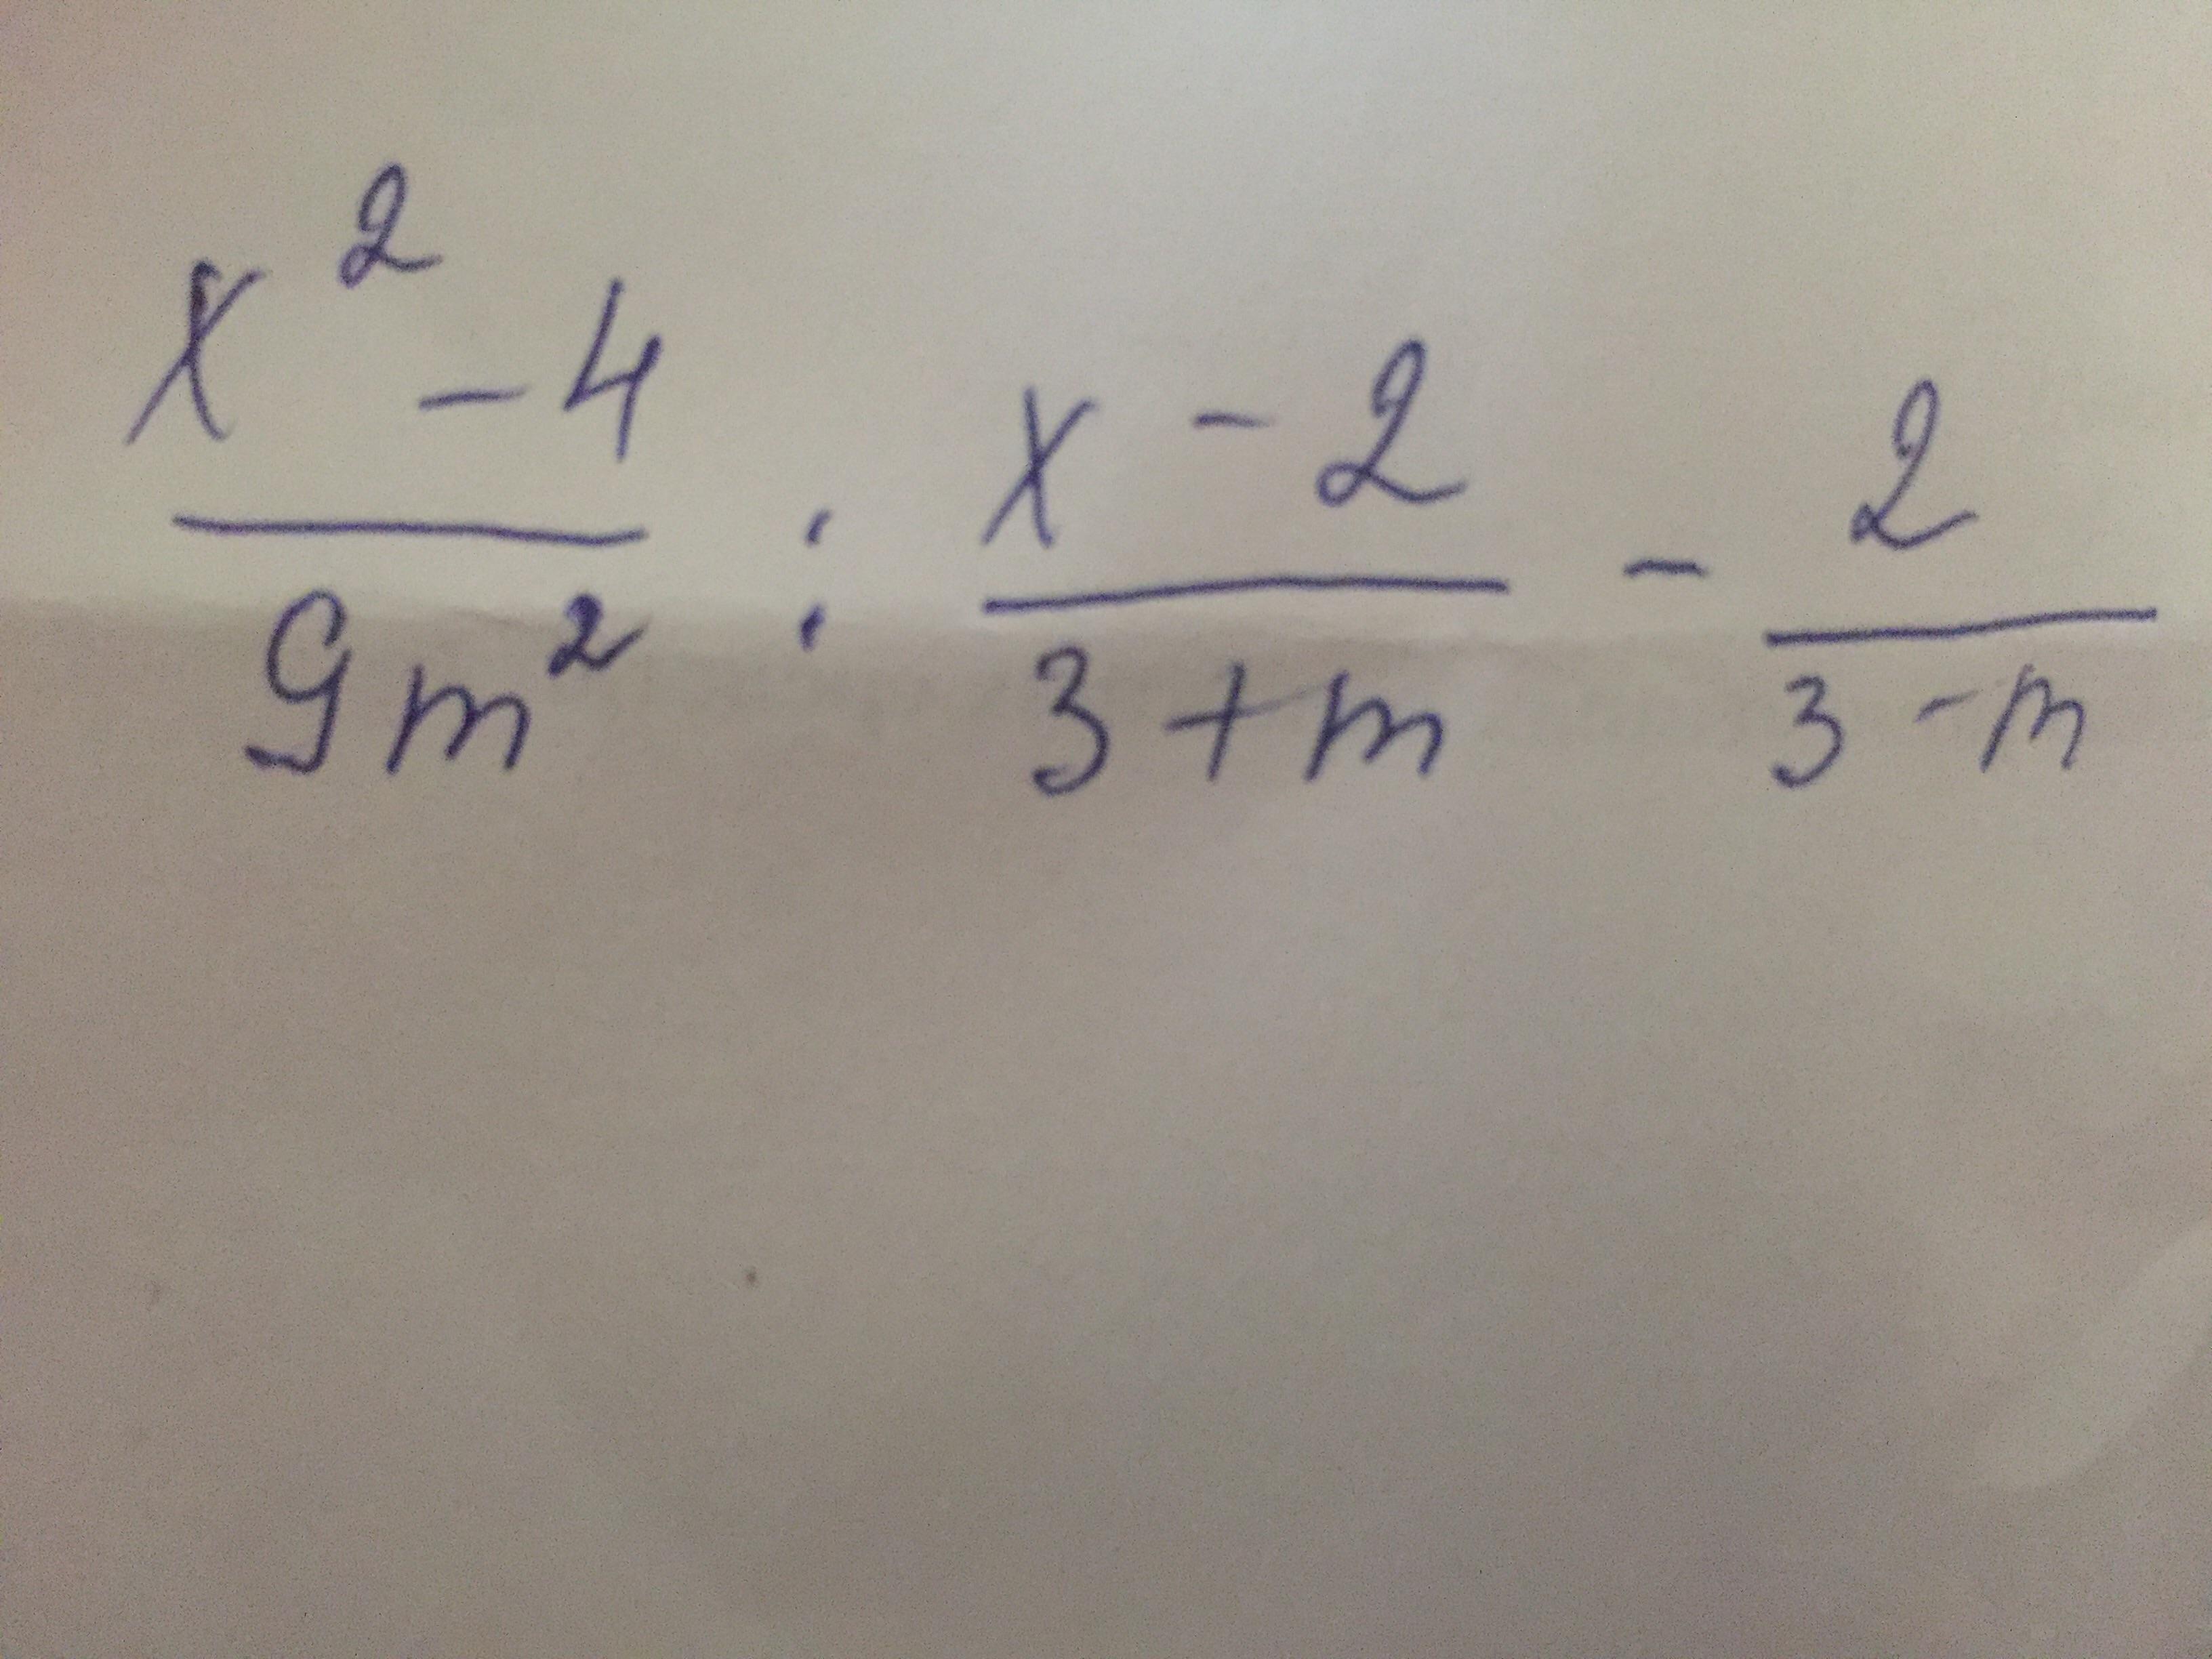 x² - 4 / 9m² : x - 2 / 3 + m - 2 / 3 - m